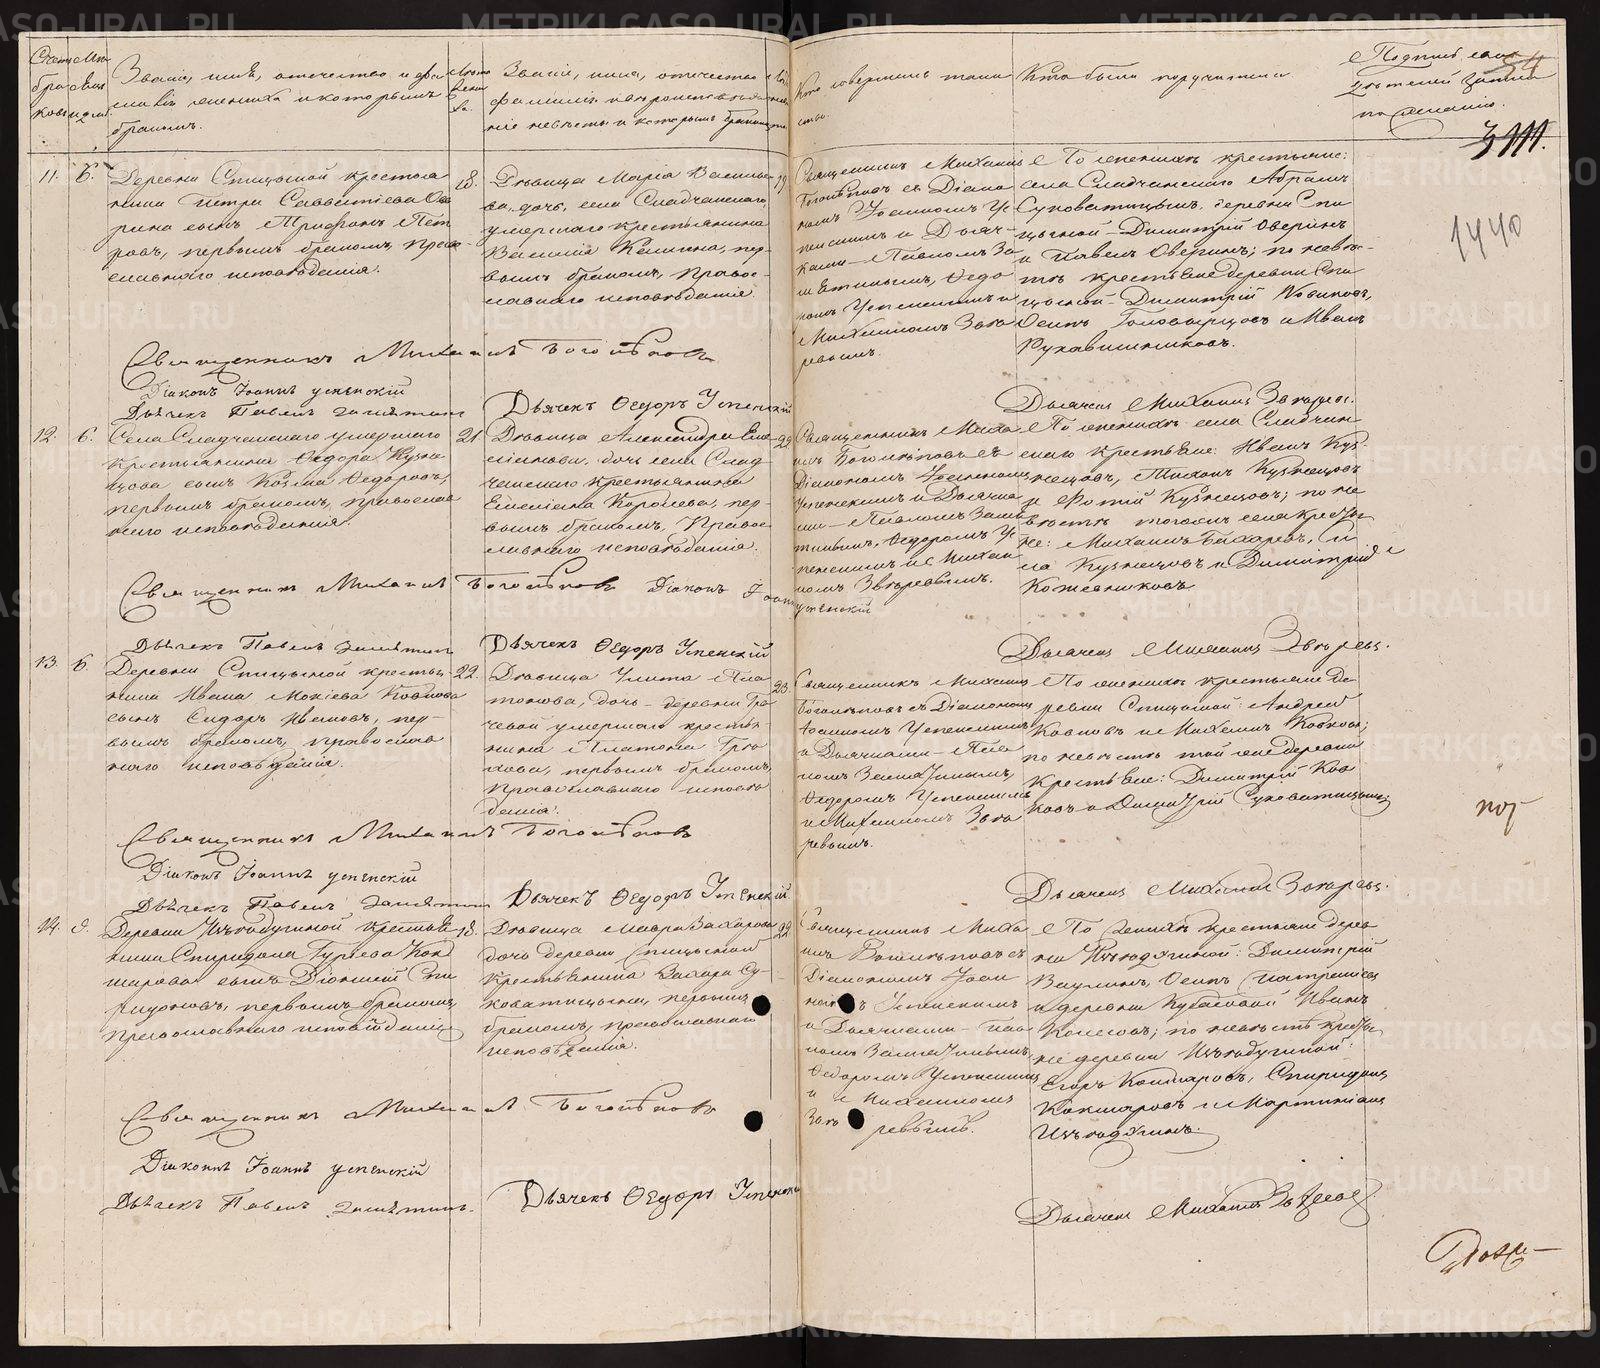 Звание, имя, отечество и фа-
милiя жениха и которымъ
бракомъ.
Званiе, имя, отечество
Кто совершалъ таин-
ство.
Кто были поручители
по желанiю.
54
11. 6.
Деревни Спицыной крестья
нина Петра Савватiева Ове
рина сынъ Трифонъ Пет
ровъ, первымъ бракомъ, право-
славнаго исповѣданiя.
18.
Дѣвица Марiя Василье
ва, дочь села Сладчанскаго
умершаго крестьянина
Василiя Калинина, пер-
вымъ бракомъ, право-
славнаго исповѣданiя.
19
Священникъ Михаилъ
Боголѣповъ съ Дiако
номъ Iоанномъ Ус
пенскимъ и Дьяч-
ками - Павломъ За
мятинымъ, Ѳедо
ромъ Успенскимъ и
Михаиломъ Звѣ
ревымъ.
По женихѣ крестьяне:
села Сладчанскаго Абрамъ
Суковатицынъ, деревни Спи
цыной - Димитрiй Оверинъ
и Павелъ Оверинъ; по невѣ-
стѣ крестьяне деревни Спи
цыной - Димитрiй Ковковъ,
Осипъ Головырцовъ и Иванъ
Рукавишниковъ.
1440
Священникъ Михаилъ Боголѣповъ
Дiаконъ Iоаннъ Успенскiй
Дьячекъ Павелъ Замятинъ
Дьячекъ Ѳедоръ Успенскiй
Дьячекъ Михаилъ Звѣревъ.
12. 6.
Села Сладчанскаго умершаго
крестьянина Ѳедора Кузне
цова сынъ Козма Ѳедоровъ,
первымъ бракомъ, православ
наго исповѣданiя.
21
Дѣвица Александра Еме
лiянова, дочь села Слад
чанскаго крестьянина
Емелiяна Королева, пер-
вымъ бракомъ, Право
славнаго исповѣданiя.
22
Священникъ Миха
илъ Боголѣповъ съ
Дiакономъ Iоанномъ
Успенскимъ и Дьячка
ми - Павломъ Замя
тинымъ, Ѳедоромъ Ус
пенскимъ и Михаи
ломъ Звѣревымъ.
По женихѣ села Сладчан
скаго крестьяне: Иванъ Куз-
нецовъ, Тихонъ Кузнецовъ
и Фотiй Кузнецовъ; по не
вѣстѣ тогоже села крестья
не: Михаилъ Бахаревъ,
Кузнецовъ и Димитрiй
Кожевниковъ
Священникъ Михаилъ Боголѣповъ Дiаконъ Iоаннъ
Успенскiй
Дьячекъ Павелъ Замятинъ
Дьячекъ Ѳедоръ Успенскiй
Дьячекъ Михаилъ Звѣревъ.
13. 6.
Деревни Спицыной крестья-
нина Ивана Мокiева Ковкова
сынъ Сидоръ Ивановъ, пер-
вымъ бракомъ, православ
наго исповѣданiя.
22.
Дѣвица Улита Пла
тонова, дочь - деревни Гра
чевой умершаго крестья-
нина Платона Гра
чева, первымъ бракомъ,
Православнаго исповѣ
данiя.
23.
Священникъ Михаилъ
Боголѣповъ съ Дiакономъ
Iоанномъ Успенскимъ
и Дьячками - Пав
ломъ Замятинымъ,
Ѳедоромъ Успенскимъ
и Михаиломъ Звѣ
ревымъ.
По женихѣ крестьяне де
ревни Спицыной: Андрей
Ковковъ и Михаилъ Ковковъ;
по невѣстѣ той же деревни
крестьяне: Димитрiй Ков
ковъ и Димитрiй Суковатицынъ.
Священникъ Михаилъ Боголѣповъ
Дiаконъ Iоаннъ Успенскiй
Дьячекъ Павелъ Замятинъ
Дьячекъ Ѳедоръ Успенскiй
Дьячекъ Михаилъ Звѣревъ.
14. 9.
крестья
нина Спиридона Гурьева Кок
шарова сынъ Дiонисiй Спи
ридоновъ, первымъ бракомъ,
Православнаго исповѣданiя
18.
Дѣвица Мавра Захарова
дочь деревни Спицыной
крестьянина Захара Су-
коватицына, первымъ
бракомъ, православнаго
исповѣданiя.
22
Священникъ Миха
илъ Боголѣповъ съ
Дiакономъ Iоан
номъ Успенскимъ
и Дьячками - Пав
ломъ Замятинымъ,
Ѳедоромъ Успенскимъ
и Михаиломъ
Звѣревымъ.
По женихѣ крестьяне дерев
Димитрiй
Ваулинъ, Осипъ
и деревни Иванъ
Колесовъ; по невѣстѣ крестья
не деревни
Егоръ Кокшаровъ, Спиридонъ
Кокшаровъ и Мартинiанъ
Священникъ Михаилъ Боголѣповъ
Дiаконъ Iоаннъ Успенскiй
Дьячекъ Павелъ Замятинъ.
Дьячекъ Ѳедоръ Успенскiй
Дьячекъ Михаилъ Звѣревъ.
METRIKI.GASO-URAL.RU